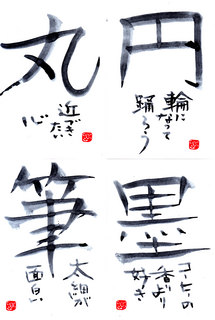 円
輪になって
踊ろう
丸
近づきたい
心
墨
コーヒーの
香りより
好き
筆
太細が
面白い